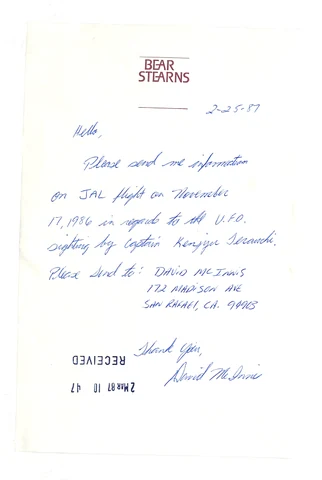 BEAR
STEARNS
2-25-87
Hello,
Please send me information
on JAL flight on November
17, 1986 in regards to the U.F.O.
sighting by Captain Kenjyu Terauchi.
Please Send to: DAVID MCINNIS
172 MADISON AVE
SAN RAFAEL, CA. 94903
Thank you,
David McInnis
RECEIVED
2 MAR 87 10 47